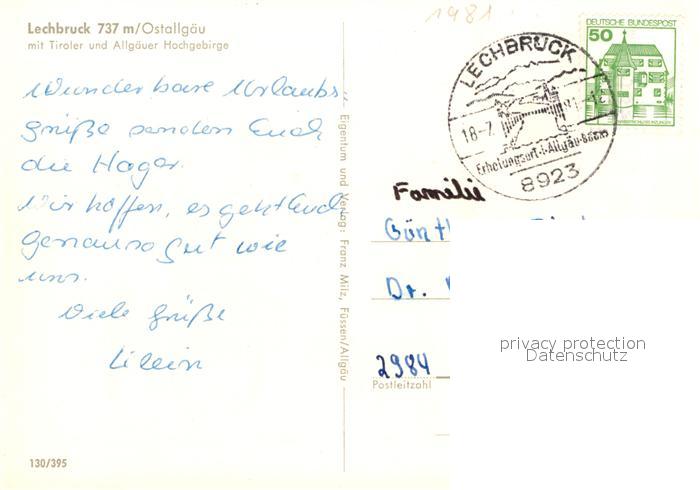 Lechbruck 737 m/Ostallgäu
mit Tiroler und Allgäuer Hochgebirge
Wunderbare Urlaubs
grüße senden Euch
die Hager.
Wir hoffen, es geht Euch
genauso gut wie
uns.
Viele Grüße
130/395
Eigentum und Verlag: Franz Milz, Füssen/Allgäu
1981
DEUTSCHE BUNDESPOST
50
LECHBRUCK
18-7
Erholungsort i. Allgäu
8923
Familie
Günth
Dr.
2984
Postleitzahl
privacy protection
Datenschutz